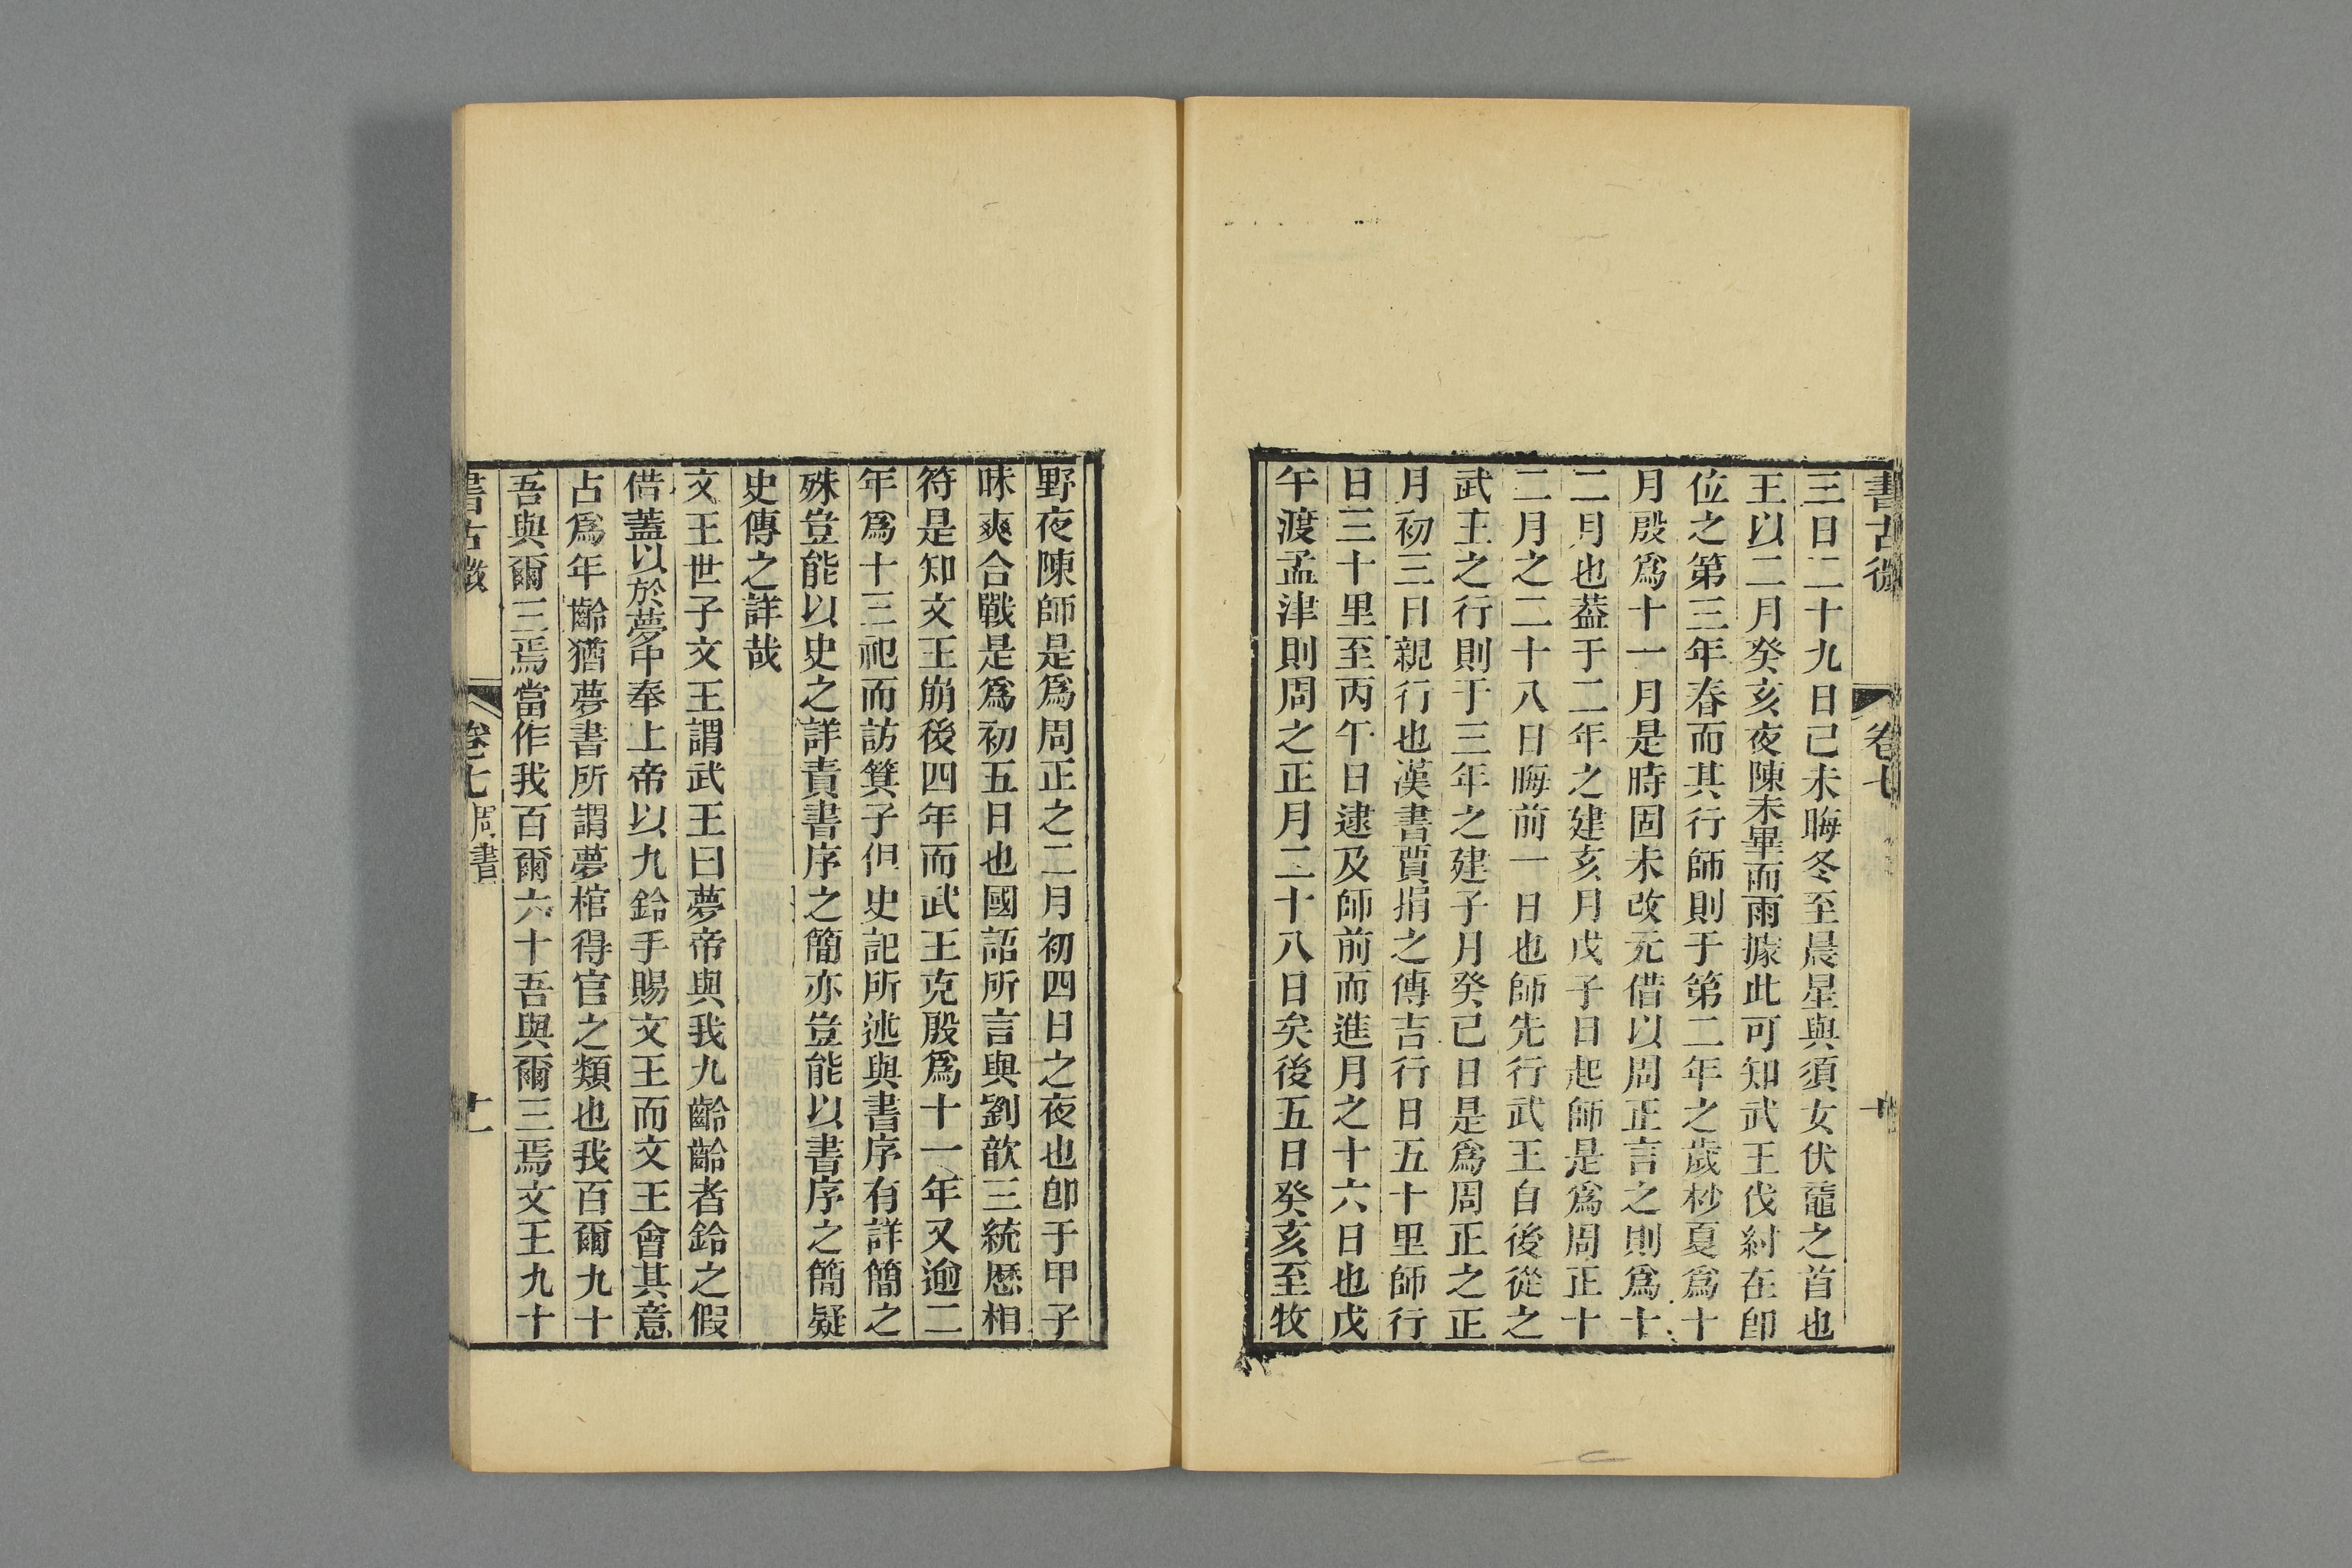 書古微 卷七 十
三日二十九日己未晦冬至晨星與須女伏鼀之首也
王以二月癸亥夜陳未畢而雨據此可知武王伐紂在卽
位之第三年春而其行師則于第二年之歲杪夏爲十
月殷爲十一月是時固未改元借以周正言之則爲十
二月也葢于二年之建亥月戊子日起師是爲周正十
二月之二十八日晦前一日也師先行武王自後從之
武王之行則于三年之建子月癸己日是爲周正之正
月初三日親行也漢書賈捐之傳吉行日五十里師行
日三十里至丙午日逮及師前而進月之十六日也戊
午渡孟津則周之正月二十八日矣後五日癸亥至牧
野夜陳師是爲周正之二月初四日之夜也卽于甲子
昧爽合戰是爲初五日也國語所言與劉歆三統厯相
符是知文王崩後四年而武王克殷爲十一年又逾二
年爲十三祀而訪箕子但史記所述與書序有詳簡之
殊豈能以史之詳責書序之簡亦豈能以書序之簡疑
史傳之詳哉
文王世子文王謂武王曰夢帝與我九齡齡者鈴之假
借蓋以於夢中奉上帝以九鈴手賜文王而文王會其意
占爲年齡猶夢書所謂夢棺得官之類也我百爾九十
吾與爾三焉當作我百爾六十吾與爾三焉文王九十
書古微 卷七 周書 十一